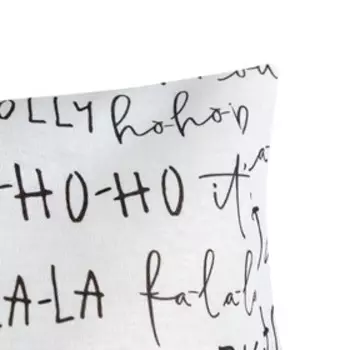 OLLY ho-ho-h
-HO-HO it
A-LA fa-la-l